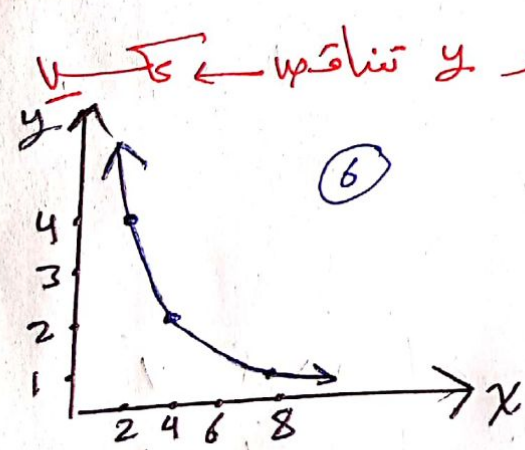 y تناقص ←
y
6
4
3
2
1
2 4 6 8 X